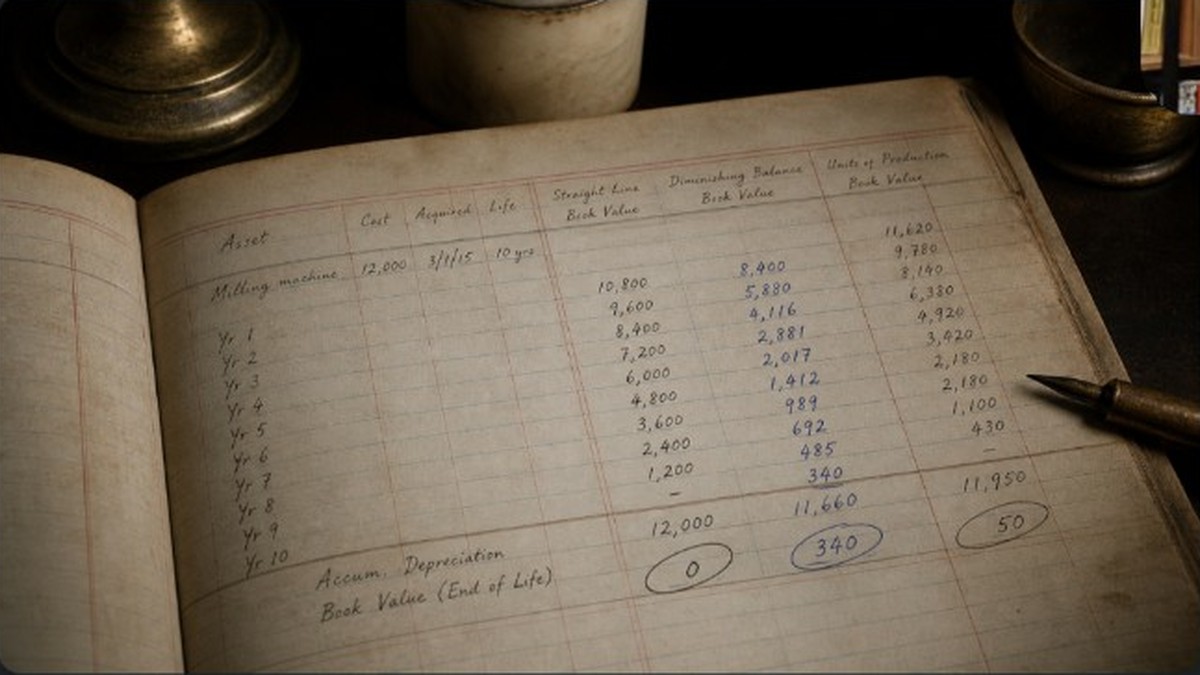 Asset Cost Acquired Life Straight Line Book Value Diminishing Balance Book Value Units of Production Book Value
Milling machine 12,000 3/1/15 10 yrs 11,620
Yr 1 10,800 8,400 9,780
Yr 2 9,600 5,880 8,140
Yr 3 8,400 4,116 6,330
Yr 4 7,200 2,881 4,920
Yr 5 6,000 2,017 3,420
Yr 6 4,800 1,412 2,180
Yr 7 3,600 989 2,180
Yr 8 2,400 692 1,100
Yr 9 1,200 485 430
Yr 10 – 340 –
Accum. Depreciation 12,000 11,660 11,950
Book Value (End of Life) 0 340 50